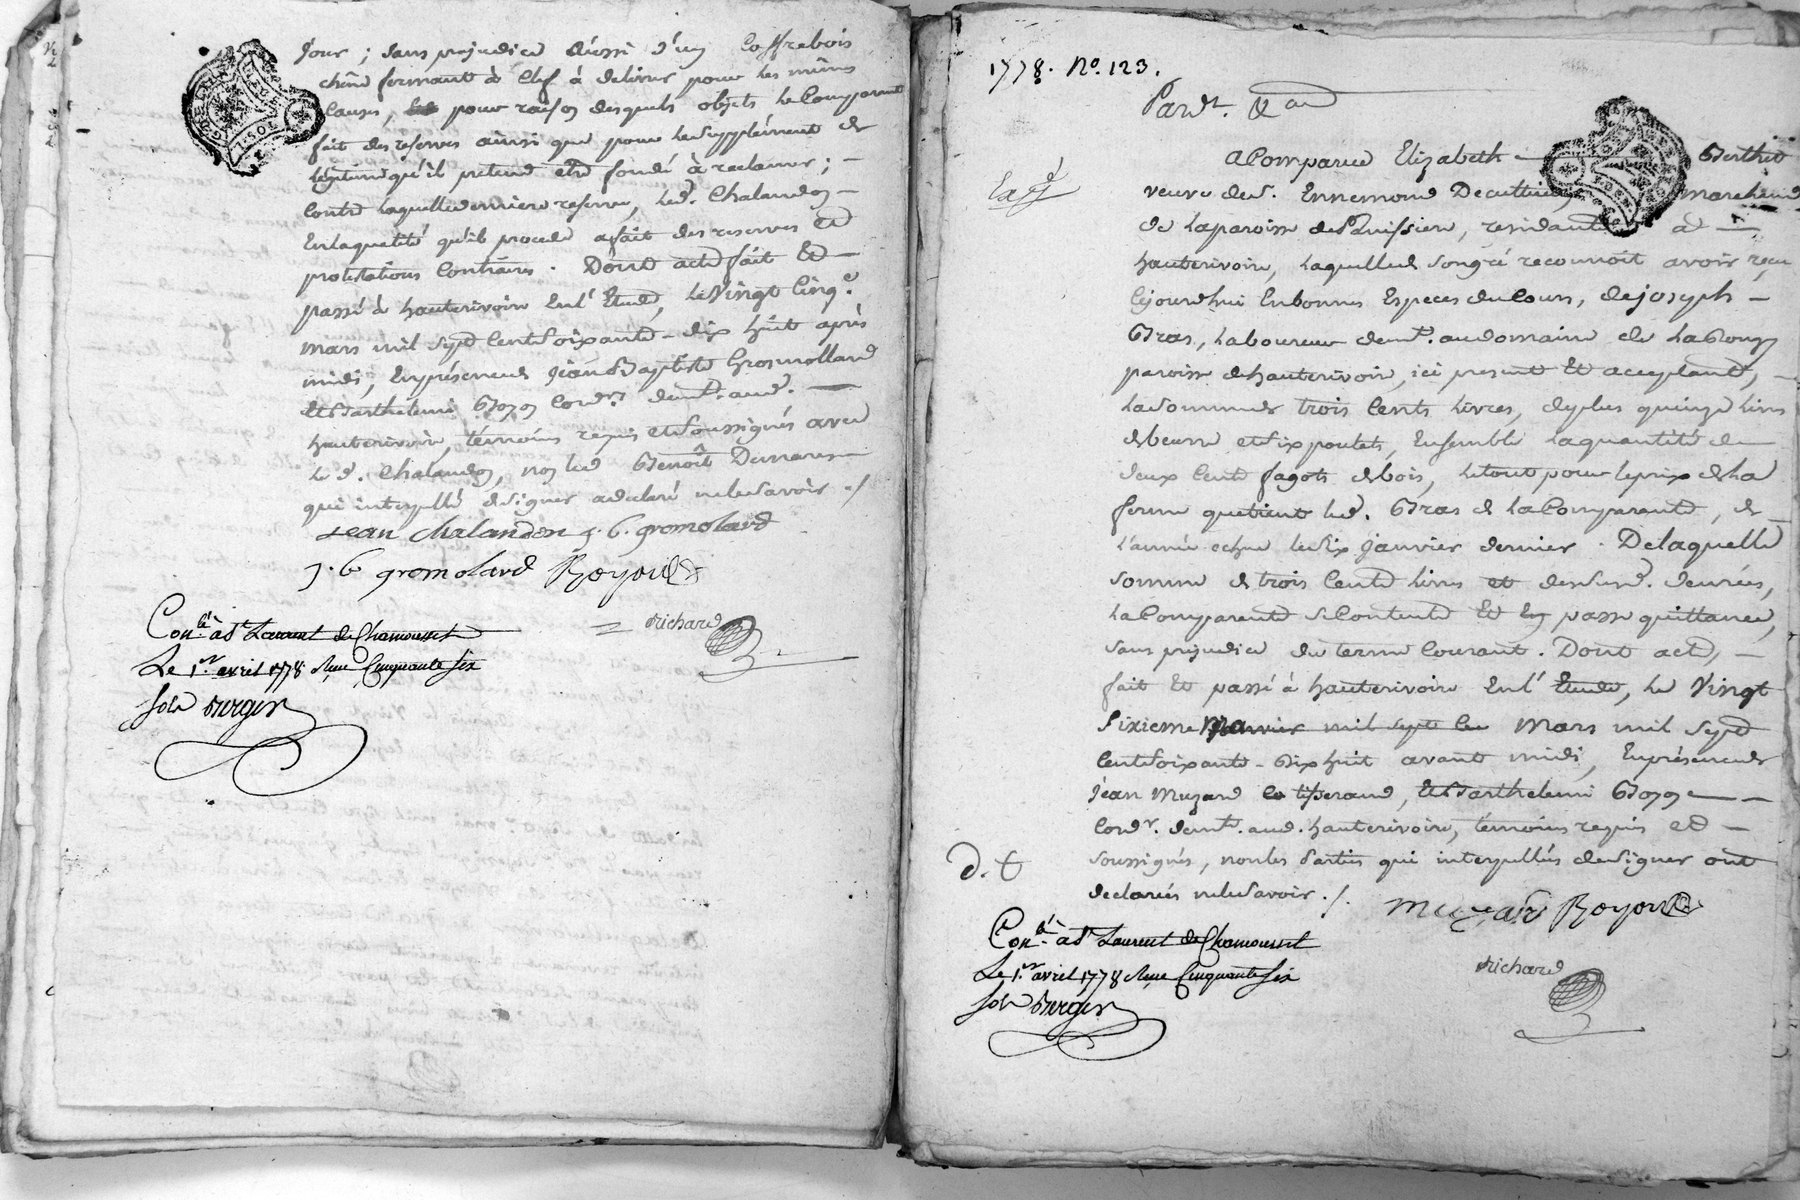 jour ; sans prejudice aussi d'un Coffre bois
chêne fermant à Clef à delivrer pour les mêmes
Causes, pour raison desquels objets le Comparant
fait des reserves ainsi que pour le Supplément de
legitime qu'il pretend etre fondé à reclamer ; —
Contre laquelle derniere reserve, led. Chalandon —
En la qualité qu'il procede a fait des reserves et
protestations Contraires. Dont acte fait et —
passé à hauterivoire En l'Etude, le Vingt Cinq.e
mars mil Sept Cent Soixante - dix huit après
midi, En présence de jean Baptiste Grosmollard
et Barthelemi Boyon Cord.rs dem.t aud. —
hauterivoire, témoins requis et Soussignés avec
le d. Chalandon, non led Benoît
qui interpellé de Signer a declaré ne le Savoir ./
jean chalandon j. b. gromolard
j. b gromolard Boyon
richard
Con.lé à S.t Laurent de Chamousset
Le 1.er avril 1778 Cinquante Six
Berger
1778. N.o 123.
Pard.t &
a Comparue Elizabeth — Berthet
veuve de S. Ennemond marchand
de la paroisse de , residante à —
hauterivoire, laquelle de Son gré reconnoit avoir reçu
Cejourdhui En bonnes Especes du Cours, de joseph —
Bras, laboureur dem.t au domaine de
paroisse de hauterivoire, ici present et acceptant, —
la Somme de trois Cents livres, de plus quinze livres
de beurre et Six poulets, Ensemble la quantité de
deux Cent fagots de bois, le tout pour le prix de la
ferme que tient led. Bras de la Comparante, de
l'année echue le Six janvier dernier . De laquelle
Somme de trois Cents livres et desSusd. denrées,
la Comparante Se Contente et En passe quittance,
Sans prejudice du terme Courant. Dont acte, —
fait et passé à hauterivoire En l'Etude, le Vingt
Sixieme janvier mil sept Cen Mars mil Sept
Cent Soixante - dix huit avant midi, En présence de
jean Muzard tisserand, et Barthelemi Boyon —
Cord.r dem.t aud. hauterivoire, témoins requis et —
Soussignés, non les Parties qui interpellées de Signer ont
declarées ne le Savoir ./.
d. t
muzard Boyon
richard
Con.lé à S.t Laurent de Chamousset
Le 1.er avril 1778 Cinquante Six
Berger